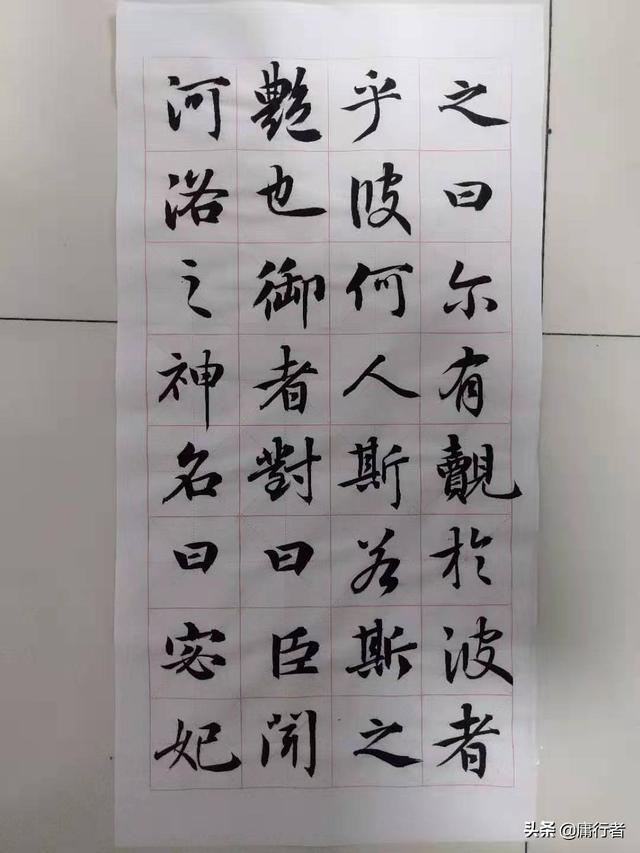 之曰尔有覿於波者
乎彼何人斯若斯之
艷也御者對曰臣聞
河洛之神名曰宓妃
头条@庸行者